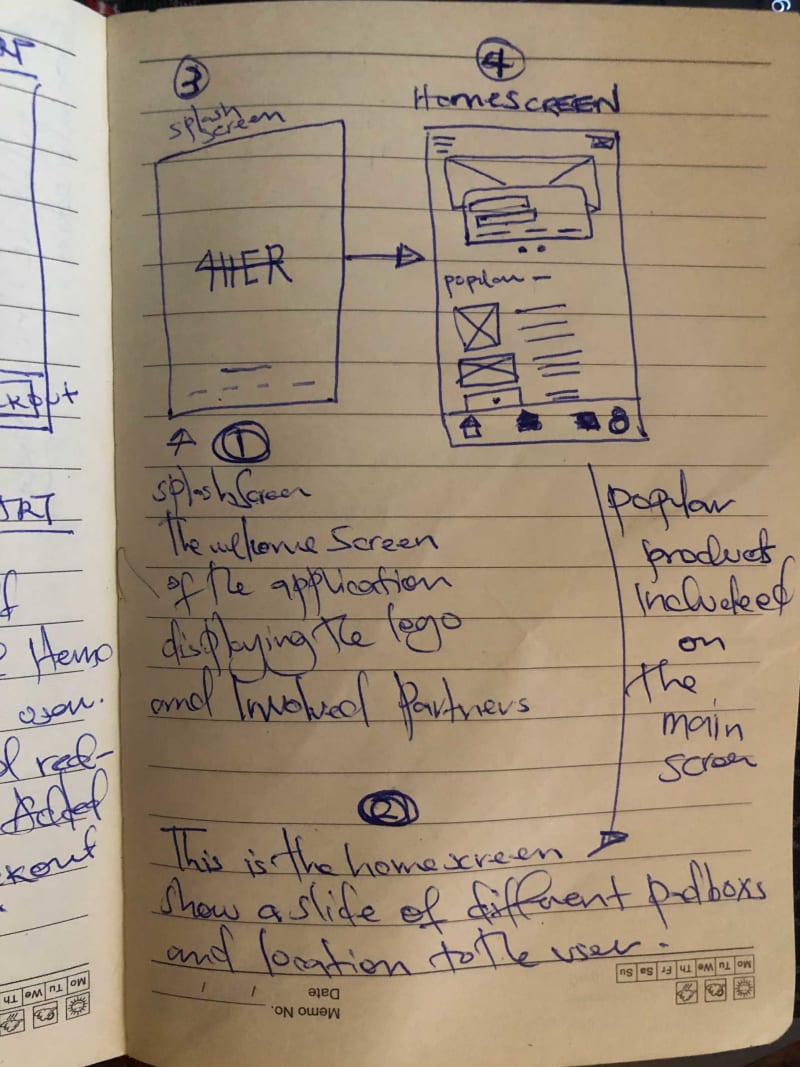 3
splash
screen
4
HomescREEN
popular
1
splashscreen
The welcome screen
of the application
displaying the logo
and Involved Partners
popular
product
Includeed
on
the
main
screen
2
This is the homescreen
show a slide of different podboxs
and location to the user.
Mo Tu We Th Fr Sa Su
Memo No.
Date / /
ART
Memo
red-
Added
Mo Tu We Th